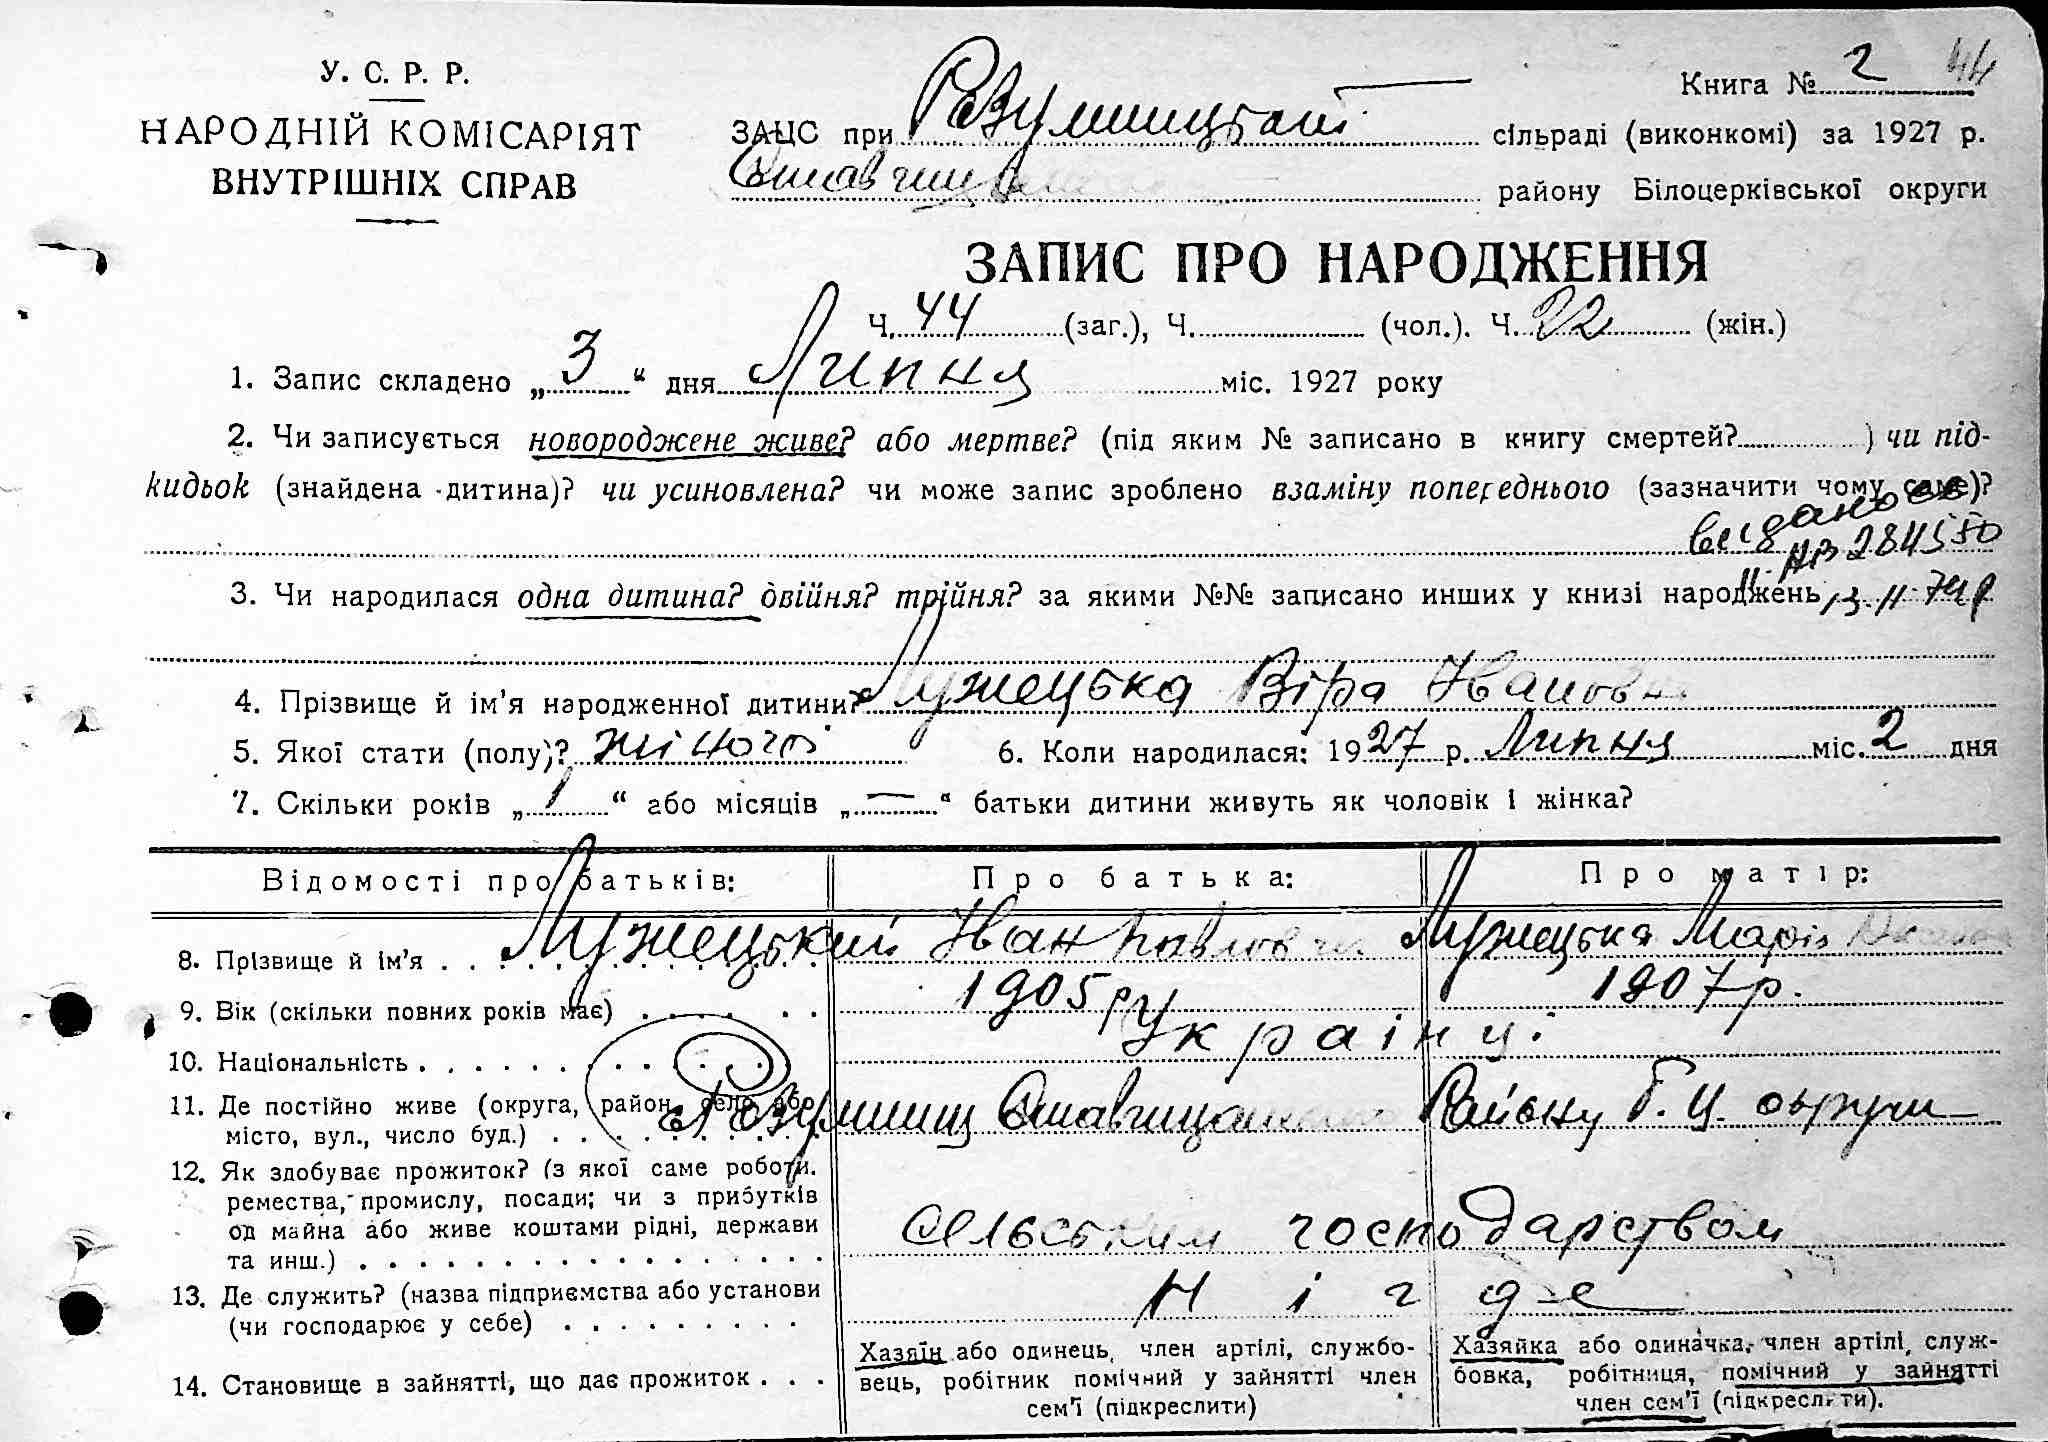 У. С. Р. Р.
НАРОДНІЙ КОМІСАРІЯТ
ВНУТРІШНІХ СПРАВ
Книга № 2 44
ЗАЦС при Розумницькій сільраді (виконкомі) за 1927 р.
Ставищан району Білоцерківської округи
ЗАПИС ПРО НАРОДЖЕННЯ
Ч. 44 (заг.), Ч. (чол.). Ч. 22 (жін.)
1. Запис складено „3“ дня Липня міс. 1927 року
2. Чи записується новороджене живе? або мертве? (під яким № записано в книгу смертей? ) чи під-
кидьок (знайдена дитина)? чи усиновлена? чи може запис зроблено взаміну попереднього (зазначити чому саме)?
видано св
II-АВ 284550
3. Чи народилася одна дитина? двійня? трійня? за якими №№ записано инших у книзі народжень 13.II.74р
4. Прізвище й ім'я народженної дитини? Лужецька Віра Івановн
5. Якої стати (полу)? жіночої 6. Коли народилася: 1927 р. Липня міс. 2 дня
7. Скільки років „1“ або місяців „—“ батьки дитини живуть як чоловік і жінка?
Відомості про батьків: Про батька: Про матір:
8. Прізвище й ім'я Лужецький Іван Павлович Лужецька Марія
9. Вік (скільки повних років має) 1905 р 1907 р.
10. Національність Українці
11. Де постійно живе (округа, район, село або
місто, вул., число буд.) Розумниц Ставищан Району Б. Ц. округи
12. Як здобуває прожиток? (з якої саме роботи.
ремества, промислу, посади; чи з прибутків
од майна або живе коштами рідні, держави
та инш.) Сільським господарством
13. Де служить? (назва підприємства або установи
(чи господарює у себе) Нігде
14. Становище в зайнятті, що дає прожиток
Хазяїн або одинець, член артілі, службо-
вець, робітник помічний у зайнятті член
сем'ї (підкреслити)
Хазяйка або одиначка, член артілі, служ-
бовка, робітниця, помічний у зайнятті
член сем'ї (підкреслити).